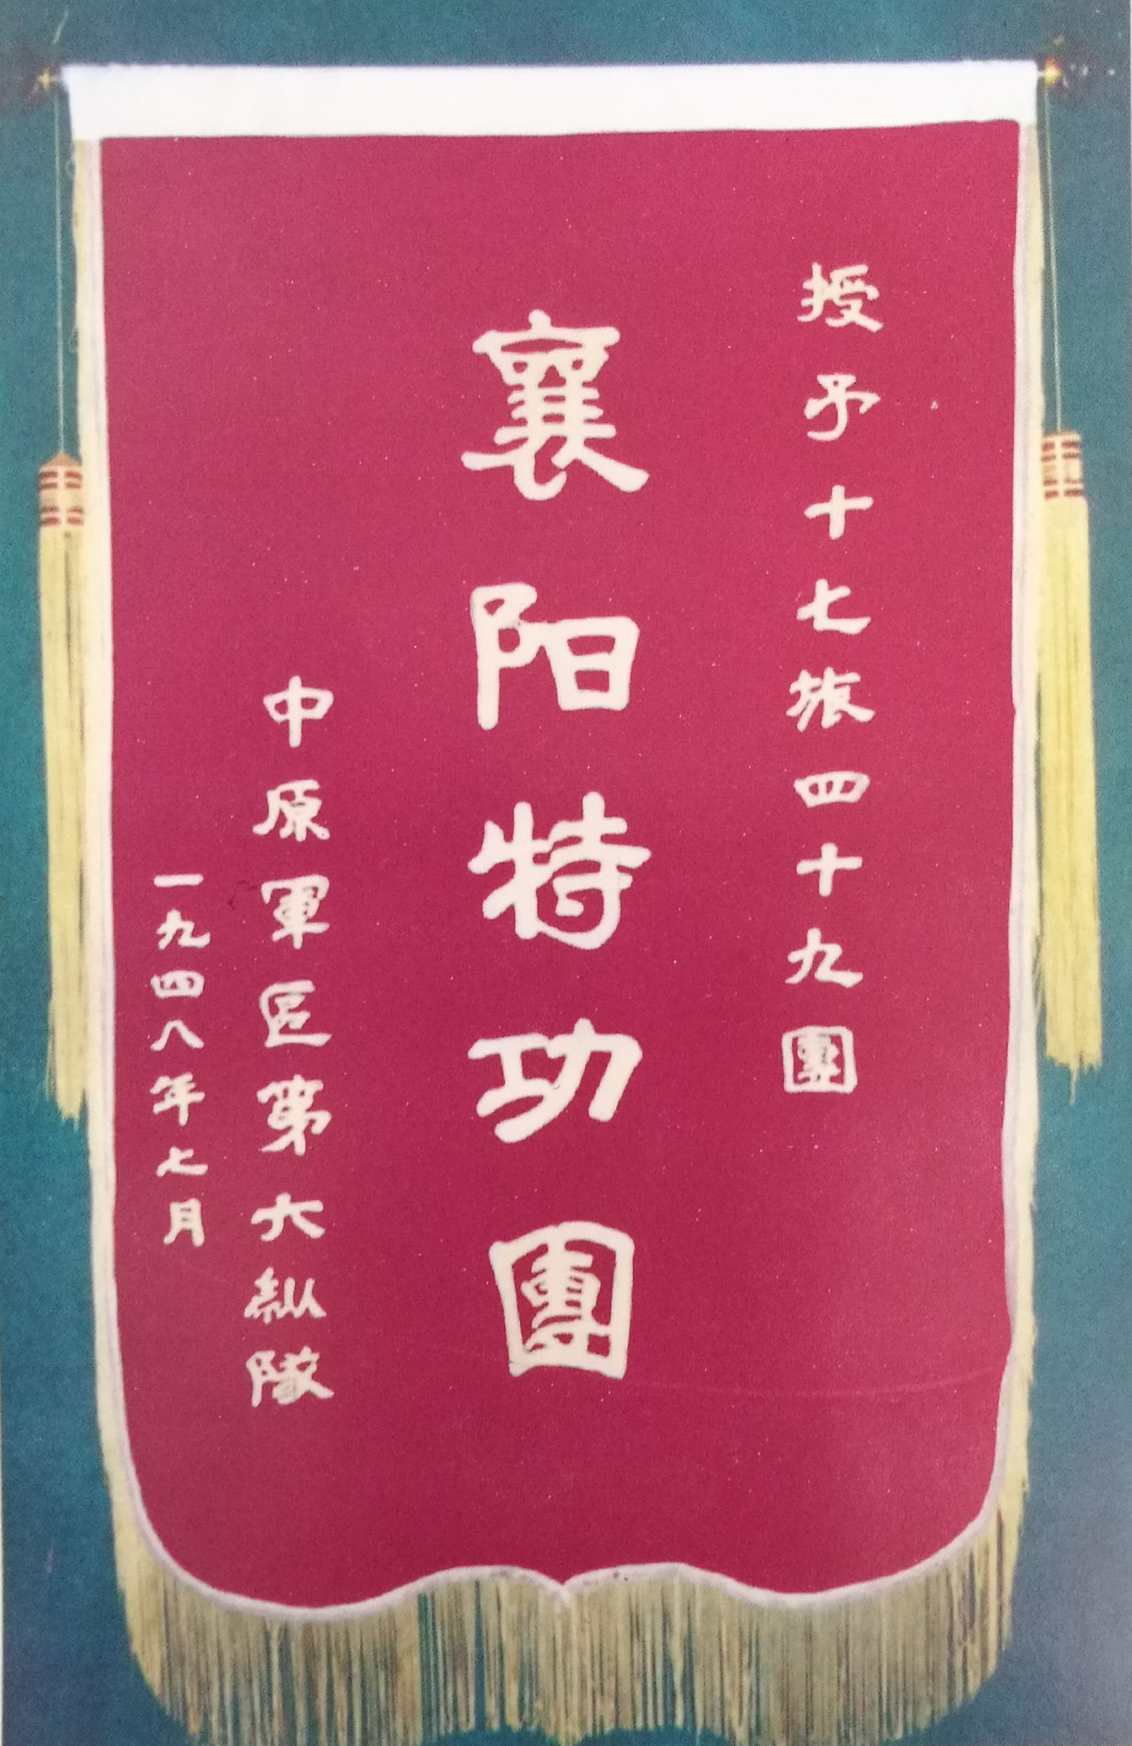 授予十七旅四十九團
襄阳特功團
中原軍區第六縱隊
一九四八年七月